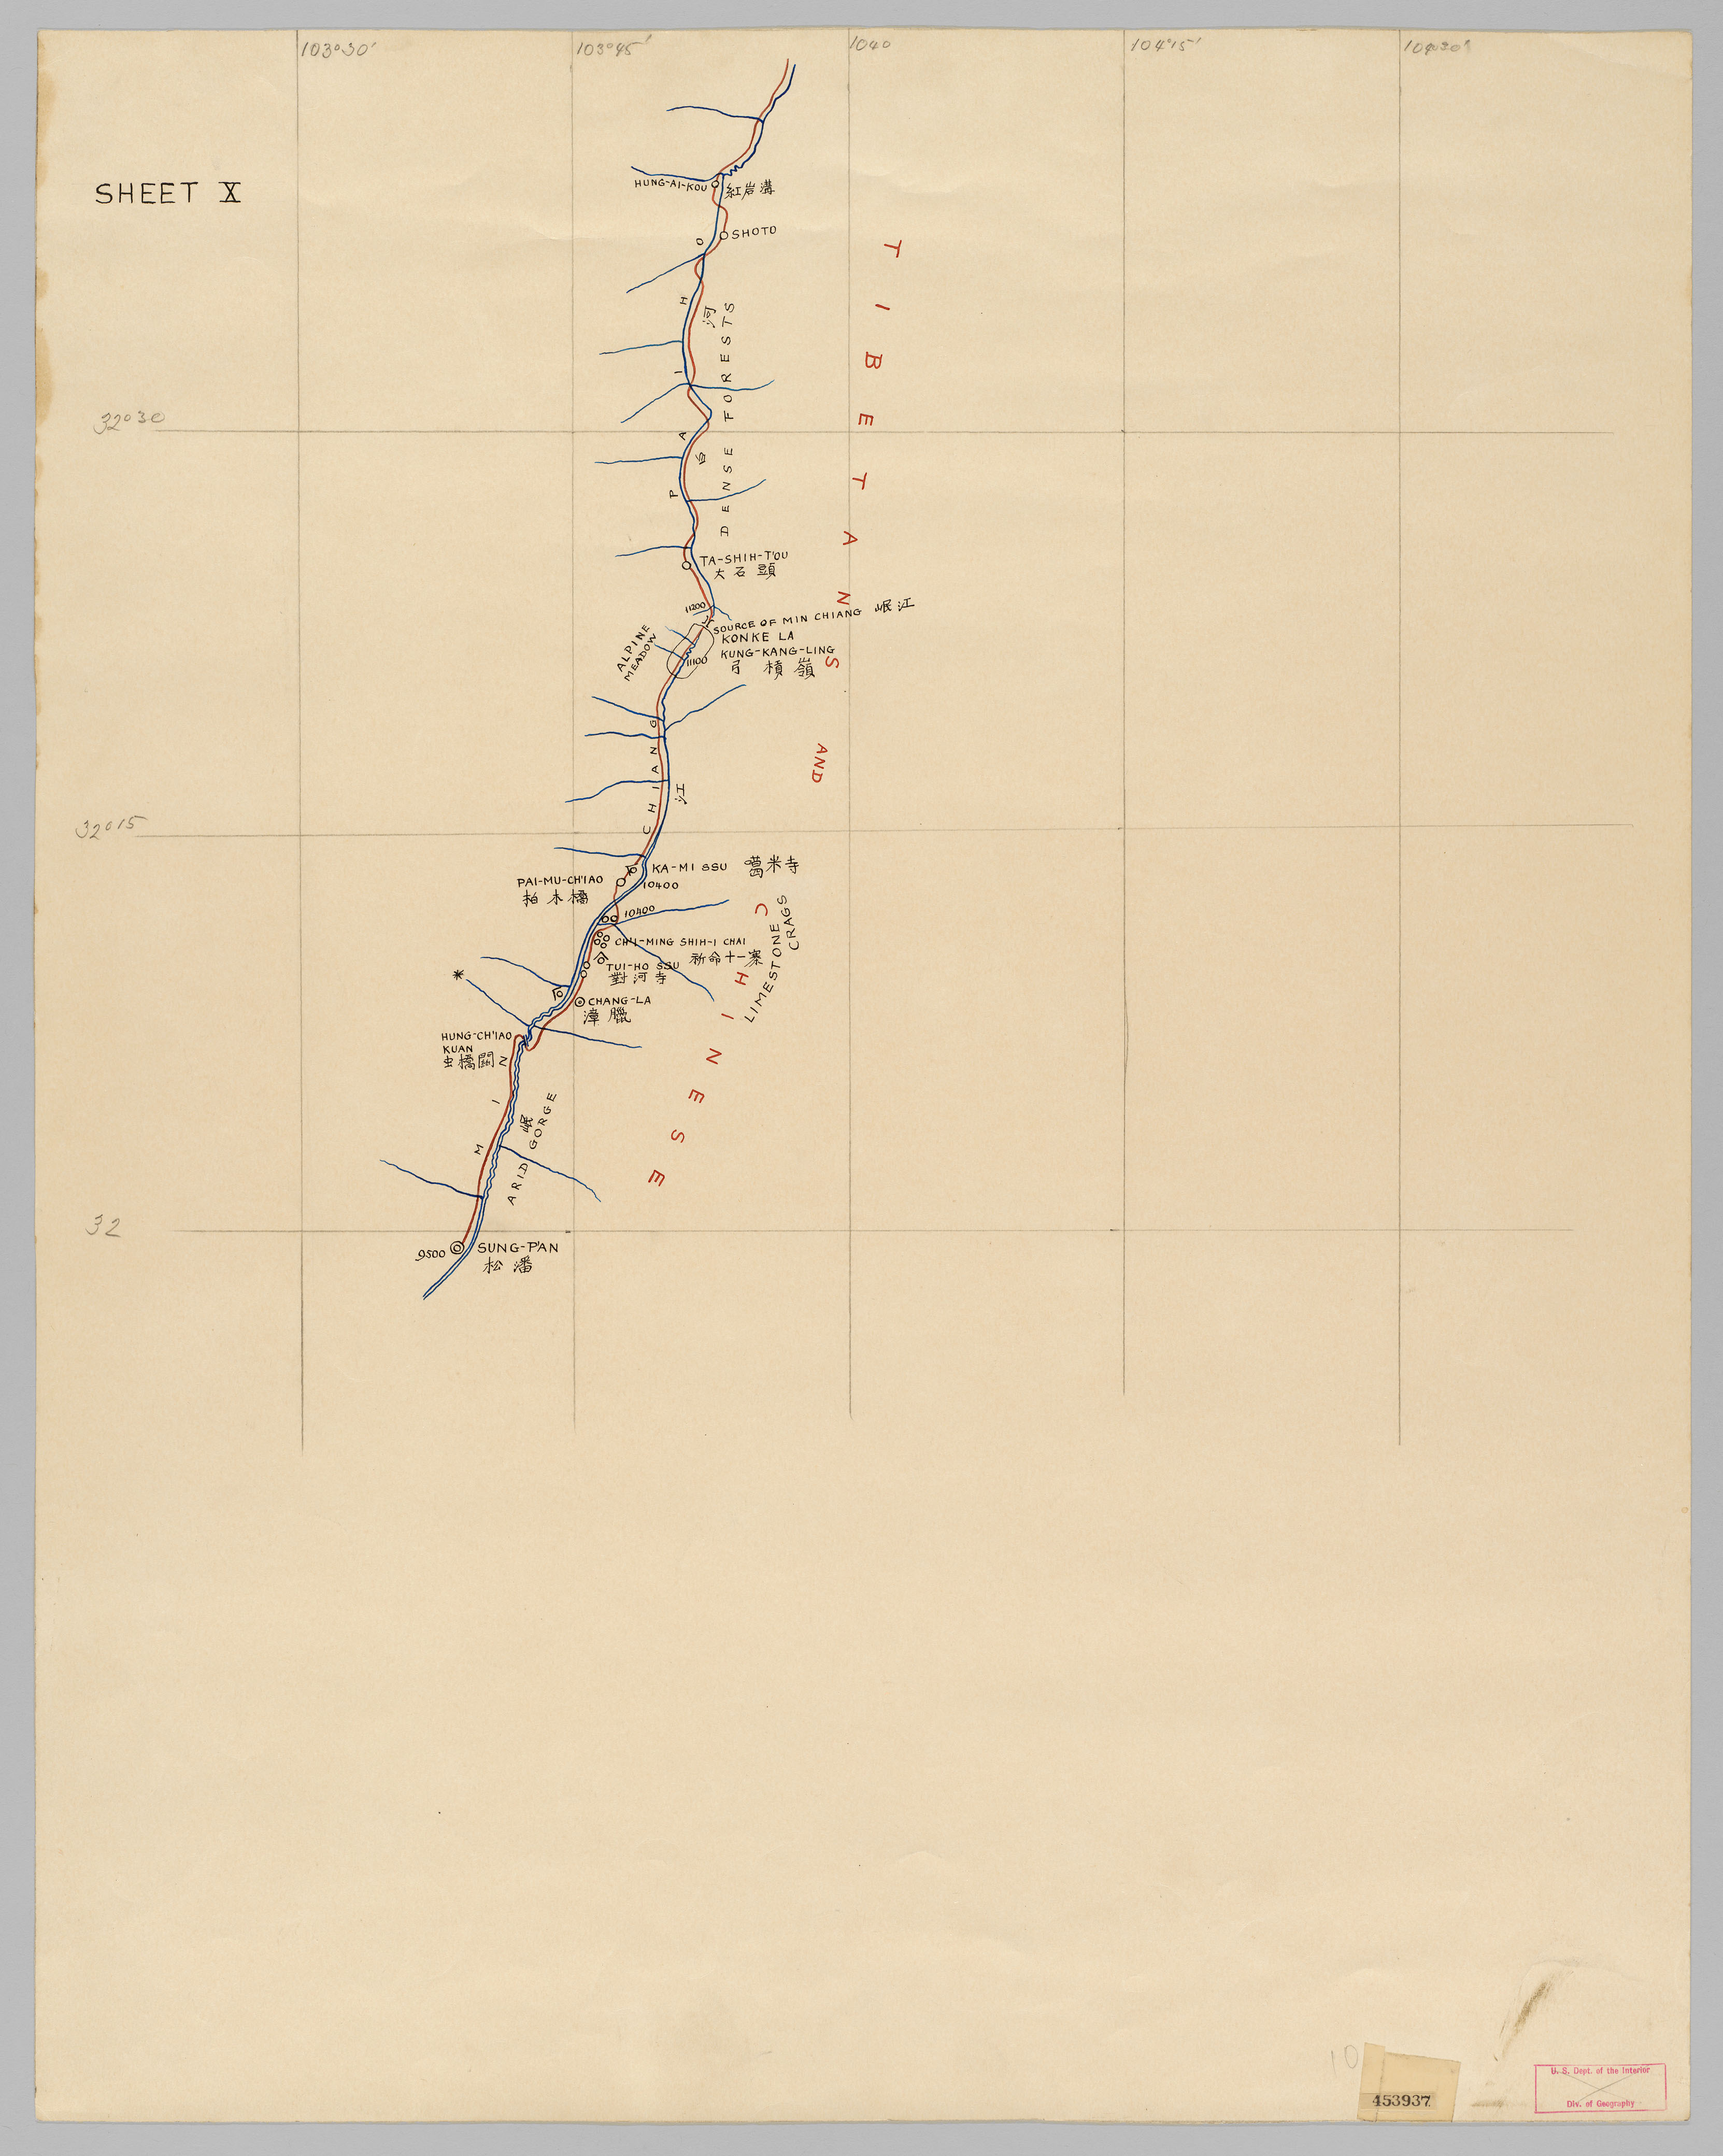 103°30'
103°45'
104°
104°15'
104°30'
SHEET X
HUNG-AI-KOU
紅岩溝
SHOTO
PAI HO
白河
DENSE FORESTS
TIBETANS AND CHINESE
32°30
TA-SHIH-T'OU
大石頭
11200
SOURCE OF MIN CHIANG 岷江
KONKE LA
KUNG-KANG-LING
弓槓嶺
ALPINE
MEADOW
11100
MIN CHIANG
岷江
32°15
KA-MI SSU 噶米寺
PAI-MU-CH'IAO
柏木橋
10400
10400
CH'I-MING SHIH-I CHAI
祈命十一寨
TUI-HO SSU
對河寺
LIMESTONE
CRAGS
CHANG-LA
漳臘
HUNG-CH'IAO
KUAN
虫橋關
ARID GORGE
32
9500
SUNG-P'AN
松潘
10
453937
U. S. Dept. of the Interior
Div. of Geography